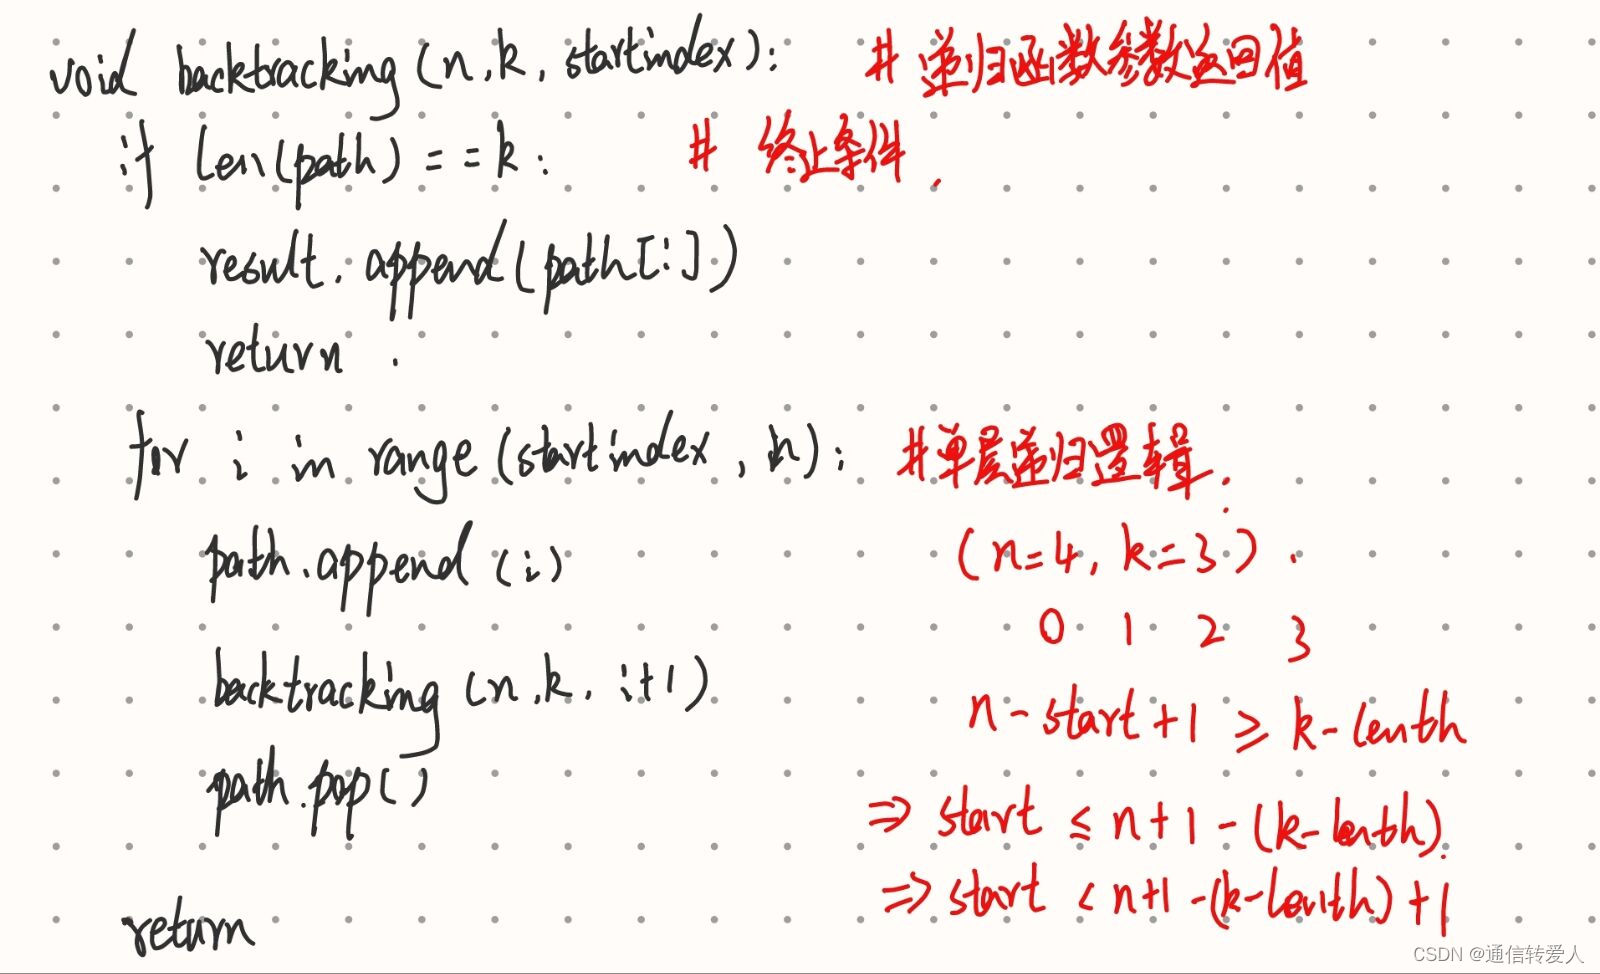 void backtracking (n, k, startindex): # 递归函数参数返回值
if len(path) == k: # 终止条件.
result.append(path[:])
return.
for i in range (startindex, n): #单层递归逻辑.
path.append (i) (n=4, k=3).
0 1 2 3
backtracking (n, k, i+1)
n-start+1 ≥ k-lenth
path.pop()
⇒ start ≤ n+1-(k-lenth).
⇒ start < n+1-(k-lenth)+1
return
CSDN @通信转爱人